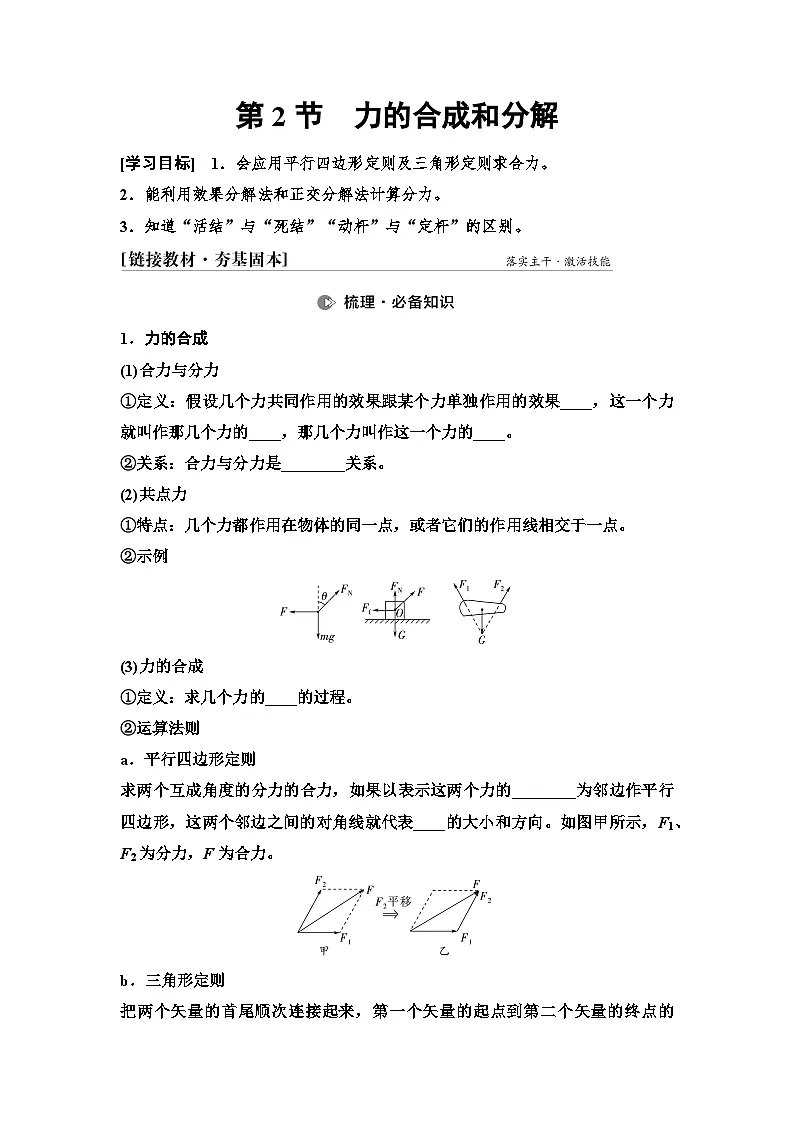 第 2 节　力的合成和分解
[学习目标]　1．会应用平行四边形定则及三角形定则求合力。
2．能利用效果分解法和正交分解法计算分力。
3．知道“活结”与“死结”“动杆”与“定杆”的区别。
[链接教材·夯基固本]　落实主干·激活技能
梳理·必备知识
1．力的合成
(1)合力与分力
①定义：假设几个力共同作用的效果跟某个力单独作用的效果____，这一个力
就叫作那几个力的____，那几个力叫作这一个力的____。
②关系：合力与分力是________关系。
(2)共点力
①特点：几个力都作用在物体的同一点，或者它们的作用线相交于一点。
②示例
F θ FN mg
Ff FN F O G
F1 F2 G
(3)力的合成
①定义：求几个力的____的过程。
②运算法则
a．平行四边形定则
求两个互成角度的分力的合力，如果以表示这两个力的________为邻边作平行
四边形，这两个邻边之间的对角线就代表____的大小和方向。如图甲所示，F1、
F2为分力，F 为合力。
F2 F F1 甲
F2平移 ⇒
F F2 F1 乙
b．三角形定则
把两个矢量的首尾顺次连接起来，第一个矢量的起点到第二个矢量的终点的